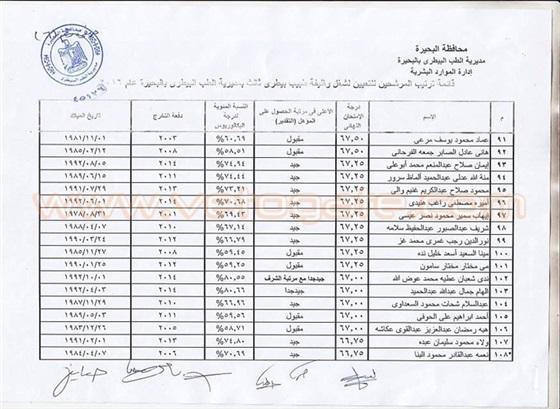 محافظة البحيرة
مديرية الطب البيطرى بالبحيرة
إدارة الموارد البشرية
قائمة ترتيب المرشحين للتعيين لشغل وظيفة طبيب بيطرى ثالث بمديرية الطب البيطرى بالبحيرة عام ٢٠١٦
م الإسم درجة الإمتحان النهائى الأعلى فى مرتبة الحصول على المؤهل (التقدير) النسبة المئوية لدرجة البكالوريوس دفعة التخرج تاريخ الميلاد
٩١ عماد محمود يوسف مرعى ٦٧,٥٠ مقبول ٦٠,٦٩% ٢٠٠٣ ١٩٨١/١١/٠١
٩٢ هانى عادل الصابر جمعه الفرحاتى ٦٧,٥٠ مقبول ٥٨,٥١% ٢٠٠٨ ١٩٨٥/٠٢/١٢
٩٣ إيمان صلاح عبدالمنعم محمد أبوعلى ٦٧,٢٥ جيد ٧٤,٩٤% ٢٠١٤ ١٩٩٢/٠٨/٠٥
٩٤ منة الله عدلى عبدالحميد ألماظ سرور ٦٧,٢٥ جيد ٧٤,٤٤% ٢٠١١ ١٩٨٩/٠٦/١٥
٩٥ محمود صلاح عبدالكريم غنيم والى ٦٧,٢٥ جيد ٧٣,٢١% ٢٠١٤ ١٩٩١/٠٧/٢٩
٩٦ أميره مصطفى راغب هنيدى ٦٧,٢٥ جيد ٧٠,٦٨% ٢٠١٤ ١٩٩٢/٠٦/٠١
٩٧ إيهاب سمير محمود نصر عيسى ٦٧,٢٥ جيد ٦٩,٤٣% ٢٠٠١ ١٩٧٨/٠٨/٣١
٩٨ شريف عبدالصبور عبدالحفيظ سلامه ٦٧,٢٥ جيد ٦٧,١٤% ٢٠١٠ ١٩٨٨/٠٤/٠٧
٩٩ نورالدين رجب عمرى محمد غز ٦٧,٢٥ جيد ٦٦,٧٩% ٢٠١٢ ١٩٩٠/٠٣/٢٤
١٠٠ مينا السعيد أسعد خليل نده ٦٧,٢٥ مقبول ٥٩,٤٥% ٢٠٠٨ ١٩٨٥/١١/٢٧
١٠١ مى مختار مختار سامون ٦٧,٢٥ مقبول ٥٩,٢٥% ٢٠١٢ ١٩٩٠/١٠/٢٠
١٠٢ ندى شعبان عطيه محمد عوض الله ٦٧,٠٠ جيدجدا مع مرتبة الشرف ٨٠,٥٥% ٢٠١٤ ١٩٩٢/١٠/٠١
١٠٣ الهام جمال عبدالله عبدالحميد ٦٧,٠٠ جيدجدا ٨٠,٦٦% ٢٠١٤ ١٩٩٢/٠٤/٠٣
١٠٤ عبدالسلام شحات محمود السعداوى ٦٧,٠٠ جيد ٦٦,٩٦% ٢٠١٠ ١٩٨٧/١١/٢٩
١٠٥ احمد ابراهيم على الحوفى ٦٧,٠٠ مقبول ٥٩,٥٠% ٢٠١١ ١٩٨٩/٠٥/٠٣
١٠٦ هبه رمضان عبدالعزيز عبدالقوى عكاشه ٦٧,٠٠ مقبول ٥٨,٧١% ٢٠٠٥ ١٩٨٣/١٢/٢٦
١٠٧ ولاء محمود سليمان عبده ٦٦,٧٥ جيد ٧٤,٨٠% ٢٠١٣ ١٩٩١/٠٢/٠١
١٠٨* نعمه عبدالقادر محمود البنا ٦٦,٧٥ جيد ٧٠,٦٩% ٢٠٠٦ ١٩٨٤/٠٤/٠٧